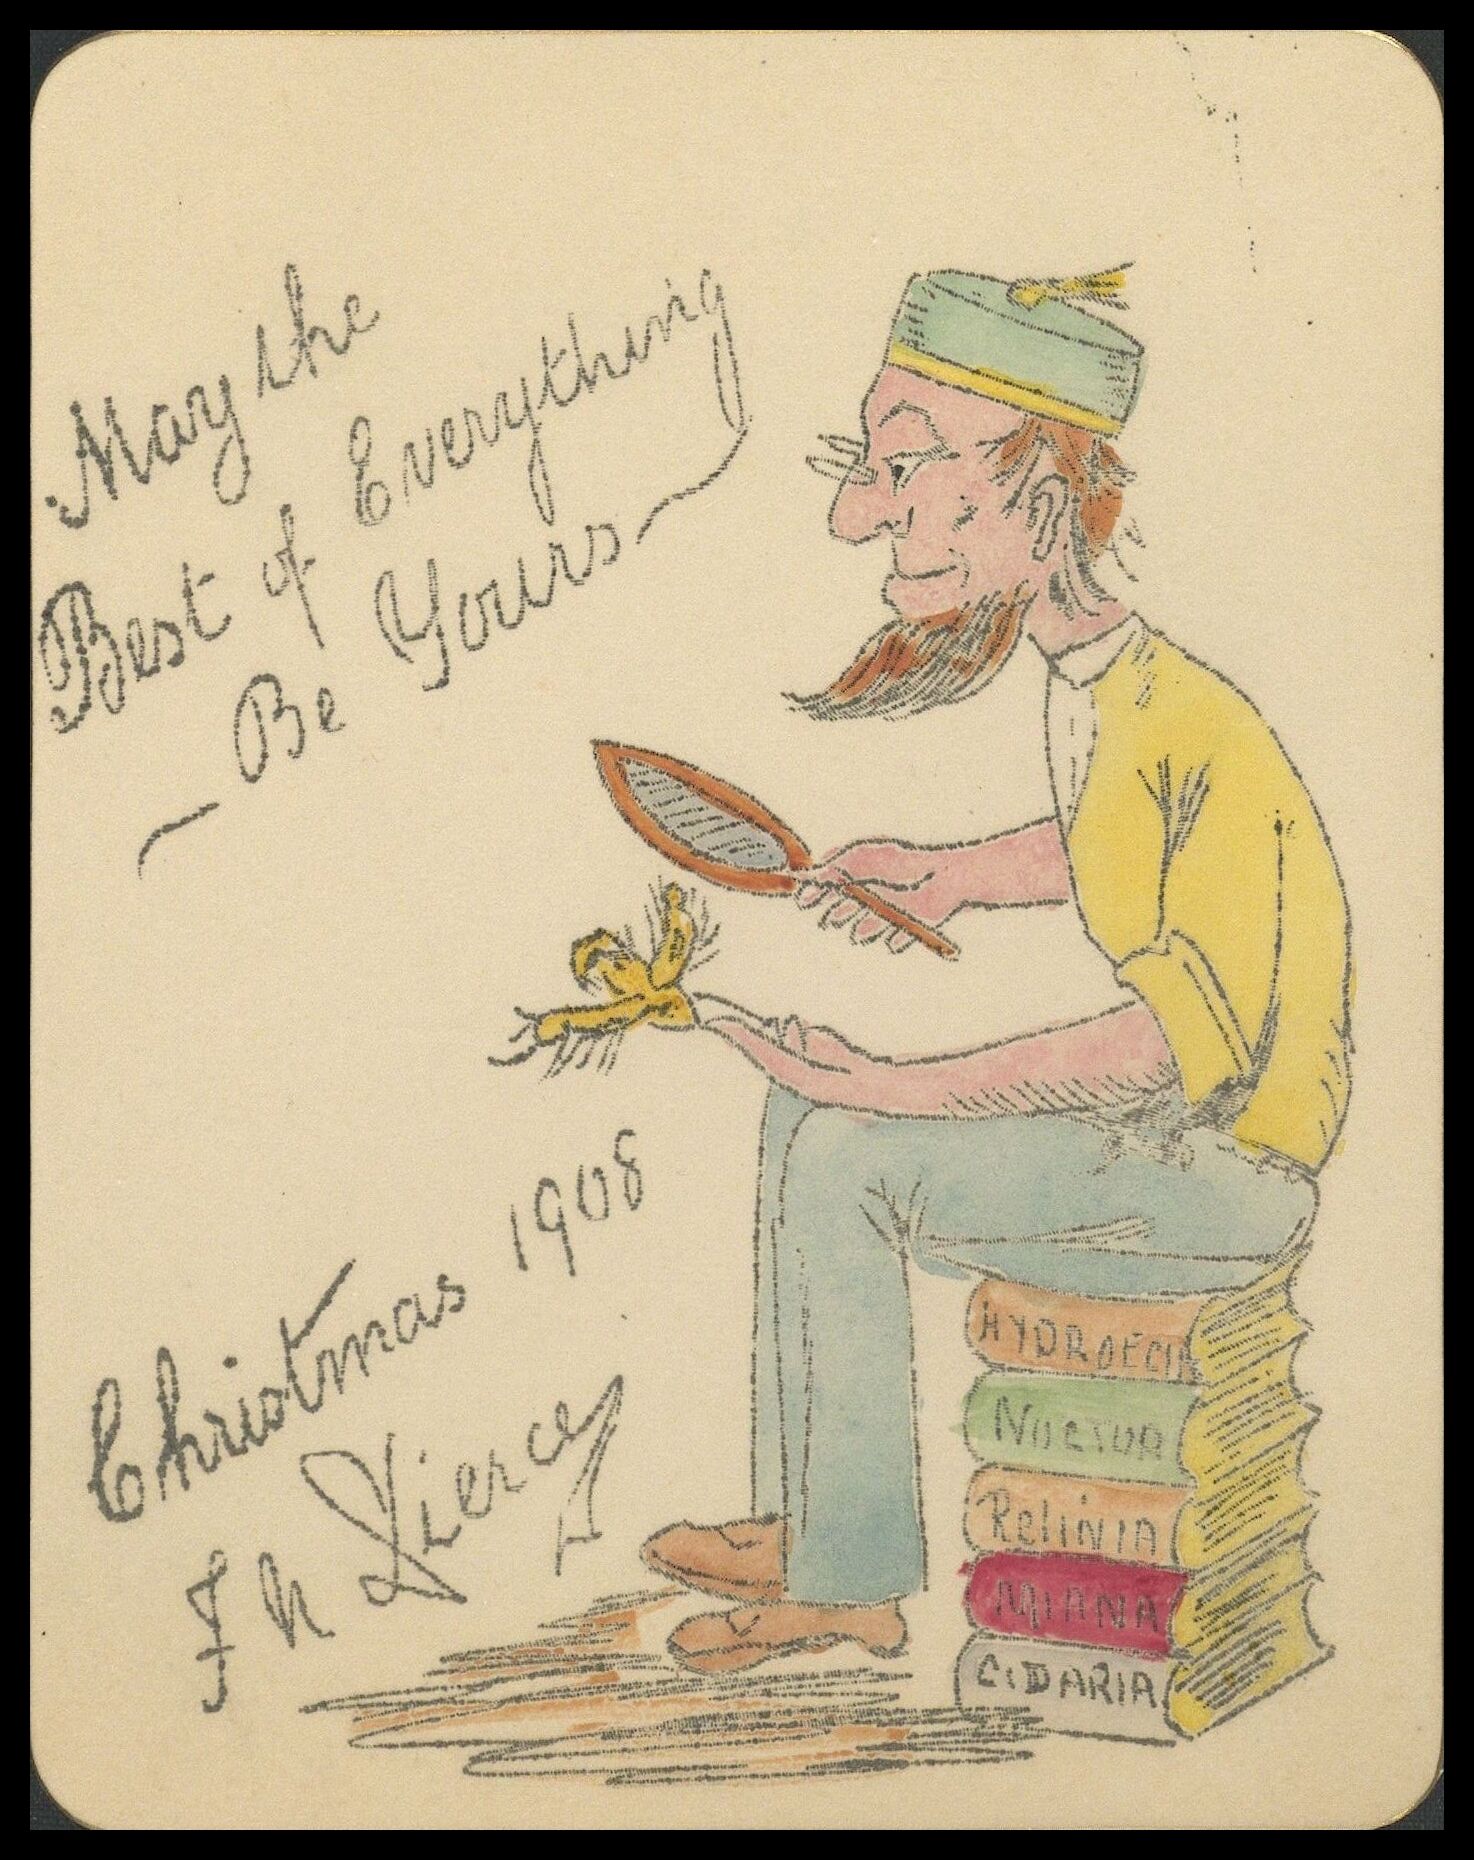 May the
Best of Everything
— Be Yours —
Christmas 1908
F N Pierce
HYDROECIA
NOCTUA
ReliNIA
MIANA
CiDARIA